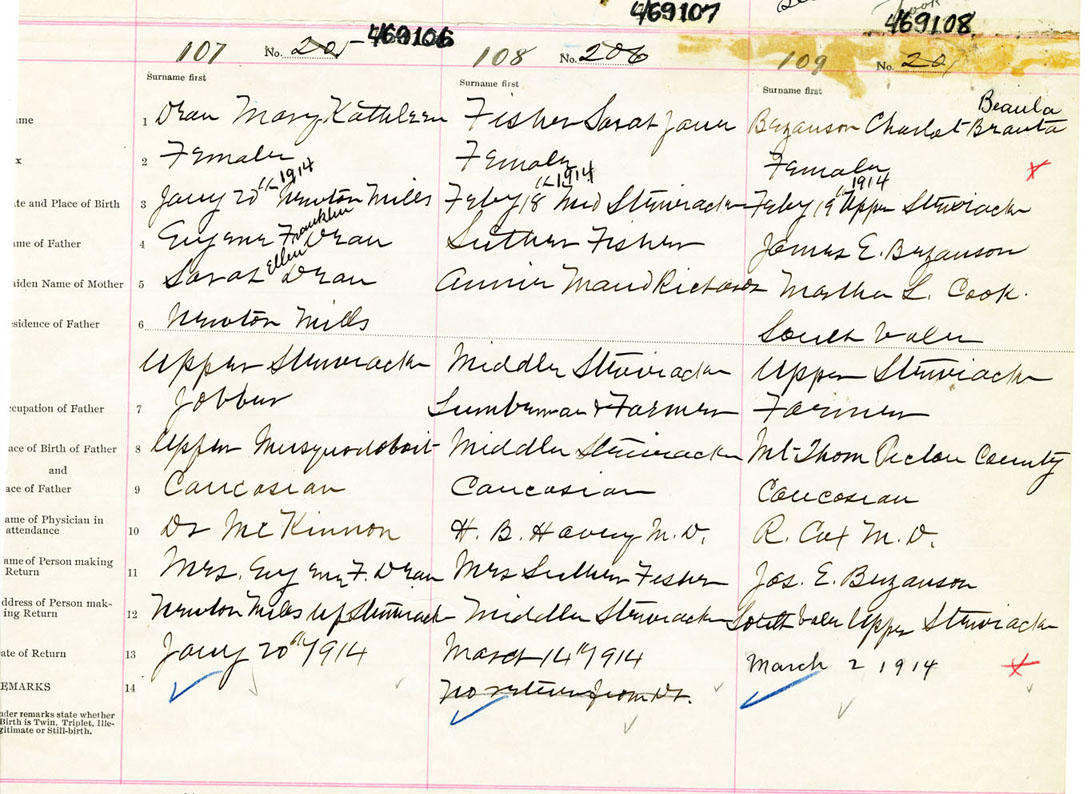 469106
469107
469108
107 No. 205
108 No. 206
109 No. 20
Surname first
Surname first
Surname first
Beaula
ame 1 Dean Mary Kathleen Fisher Sarah Jane Bezanson Charlot Beauta
x 2 Female Female Female
th 1914 th 1914 th 1914
ate and Place of Birth 3 Jany 20 Newton Mills Feby 18 Mid Stewiacke Feby 19 Upper Stewiacke
Franklin
ame of Father 4 Eugene Dean Luther Fisher James E. Bezanson
Ellen
aiden Name of Mother 5 Sarah Dean Annie Maud Richards Martha L. Cook.
esidence of Father 6 Newton Mills South Vale
Upper Stewiacke Middle Stewiacke Upper Stewiacke
ccupation of Father 7 Jobber Lumberman & Farmer Farmer
ace of Birth of Father 8 Upper Musquodoboit Middle Stewiacke Mt Thom Pictou County
and
ace of Father 9 Caucasian Caucasian Caucasian
ame of Physician in
attendance 10 Dr McKinnon H. B. Havey M. D. R. Cox M. D.
ame of Person making
Return 11 Mrs. Eugene F. Dean Mrs Luther Fisher Jas. E. Bezanson
ddress of Person mak-
ing Return 12 Newton Mills Up Stewiacke Middle Stewiacke South Vale Upper Stewiacke
ate of Return 13 Jany 20th 1914 March 14th 1914 March 2 1914
EMARKS 14 No return from Dr.
nder remarks state whether
Birth is Twin, Triplet, Ille-
gitimate or Still-birth.